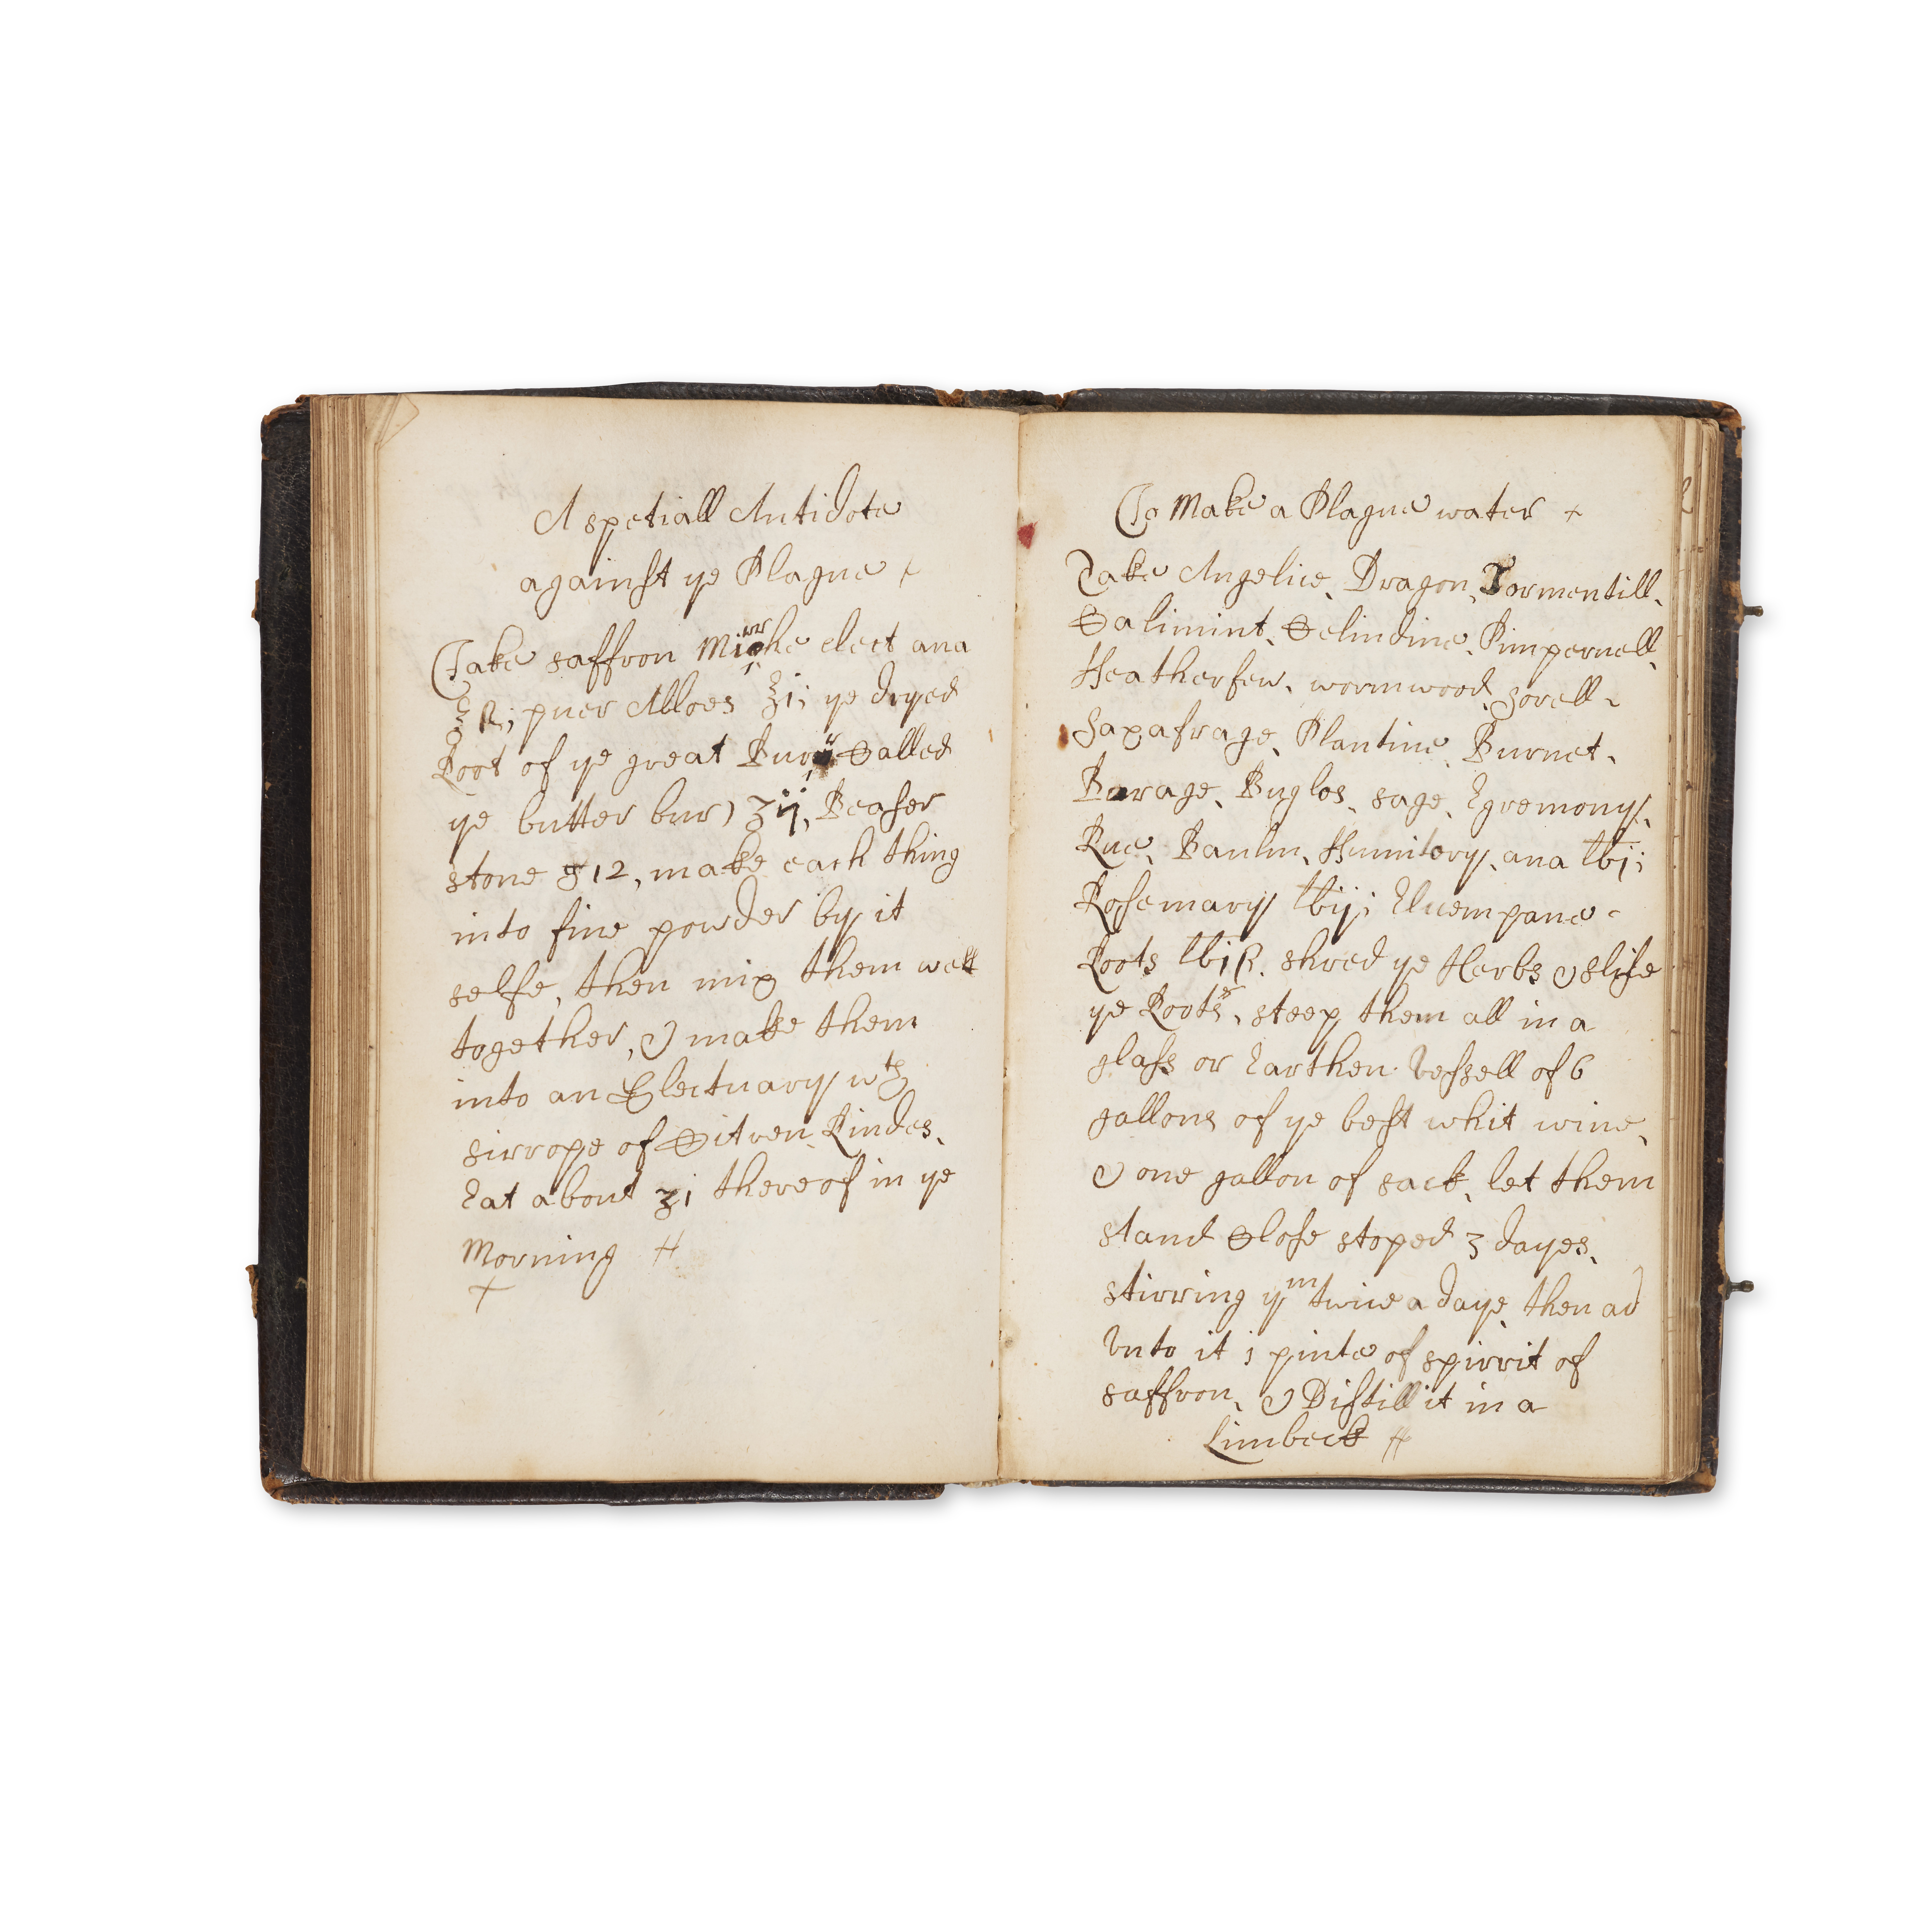 A spetiall Antidote
against ye Plague
Take saffron Mirrhe elect ana
℥ ß; puer Alloes ℥i; ye dryed
Root of ye great Burr Called
ye butter bur) ʒij, Beaser
stone g 12, make each thing
into fine powder by it
selfe, then mix them well
together, & make them
into an Electuary wth
sirrope of Citren Rindes,
Eat about ʒi thereof in ye
Morning
To Make a Plague water
Take Angelice, Dragon, Tormentill,
Calimint, Celindine, Pimpernell,
Featherfew, wormwood, sorell,
Saxafrage, Plantine, Burnet,
Burage, Buglos, sage, Egremony,
Rue, Baulm, Fumitory, ana lbj;
Rosemary lbij; Elucmpane
Roots lbiß, shred ye Herbs & slise
ye Roots, steep them all in a
glass or Earthen Vessell of 6
gallons of ye best whit wine,
& one gallon of sack, let them
stand Close stoped 3 dayes,
stirring ym twice a daye, then ad
Vnto it j pinte of spirrit of
saffron, & Distill it in a
Limbeck